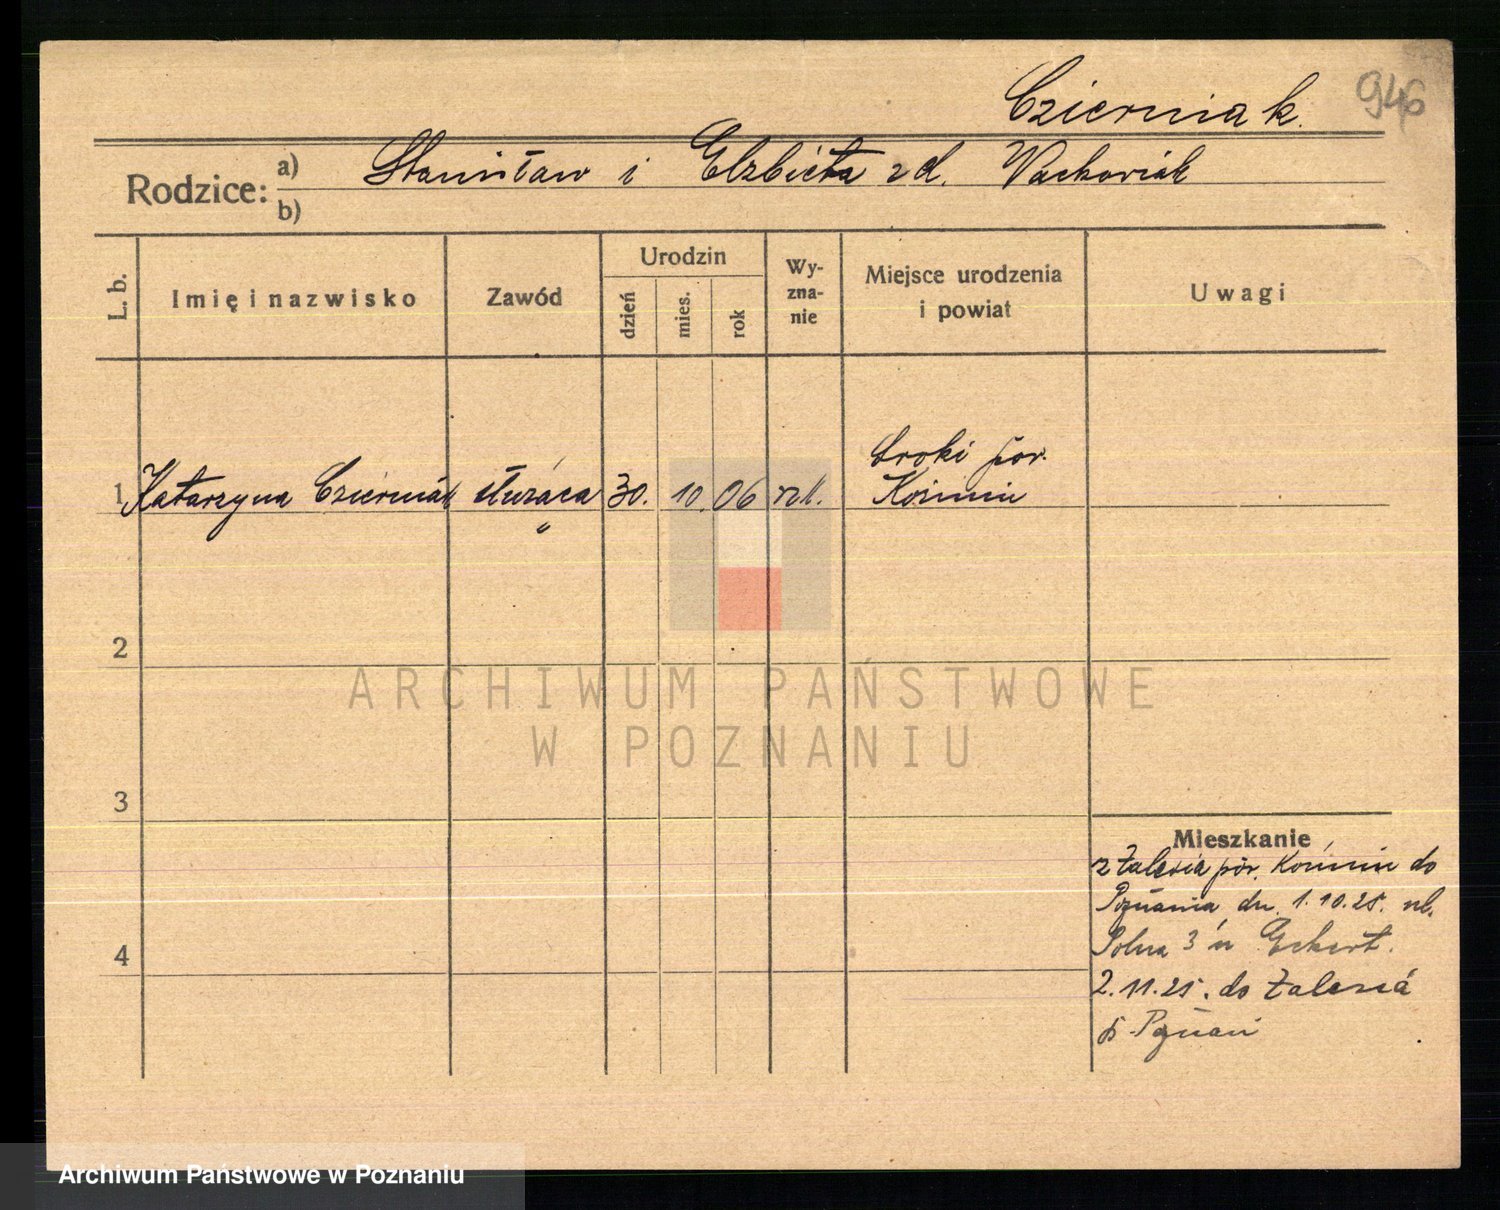 Czierniak.
946
Rodzice: a) Stanisław i Elzbieta zd. Wachowiak
b)
L. b.
Imię i nazwisko
Zawód
Urodzin
dzień
mies.
rok
Wy-
zna-
nie
Miejsce urodzenia
i powiat
Uwagi
Sroki pow.
1 Katarzyna Czierniak służąca 30. 10. 06 rzk. Koźmin
2
ARCHIWUM PAŃSTWOWE
W POZNANIU
3
Mieszkanie
z Zalesia pow. Koźmin do
Poznania dn. 1.10.25. ul.
4
Polna 3 u Eckert.
2.11.25. do Zalesia
Poznań
Archiwum Państwowe w Poznaniu